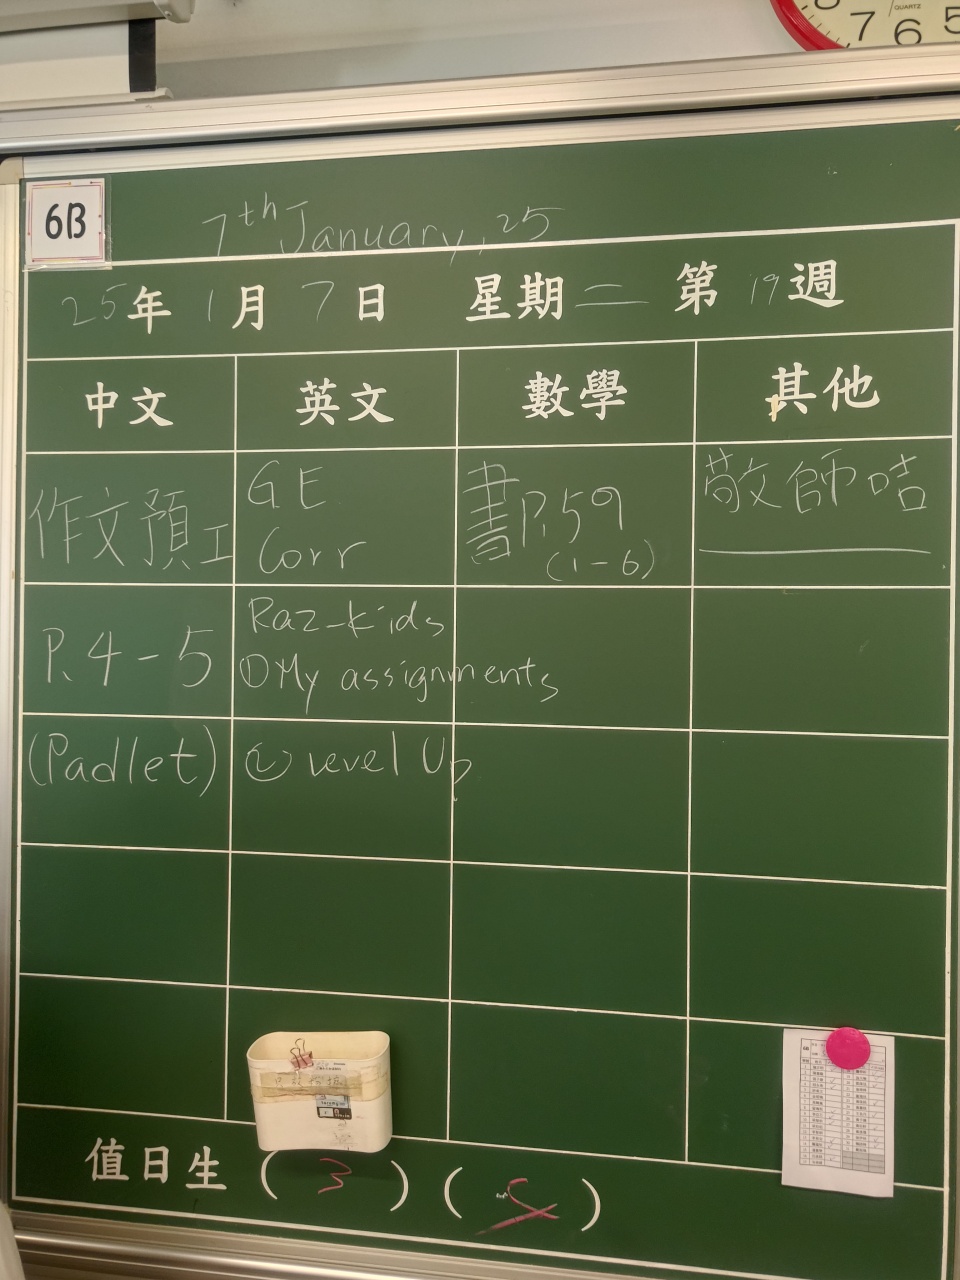 QUARTZ
7 6 5
6B
7th January, 25
25年1月7日 星期二 第19週
中文 英文 數學 其他
作文預工
P.4-5
(Padlet)
GE
Corr
Raz-kids
①My assignments
② Level Up
書P.59
(1-6)
敬師咭
值日生(3)(5)